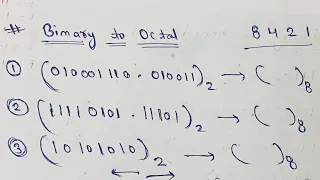 # Binary to Octal 8 4 2 1
① (010001110.010011)₂ → ( )₈
② (11110101.11101)₂ → ( )₈
③ (10101010)₂ → ( )₈